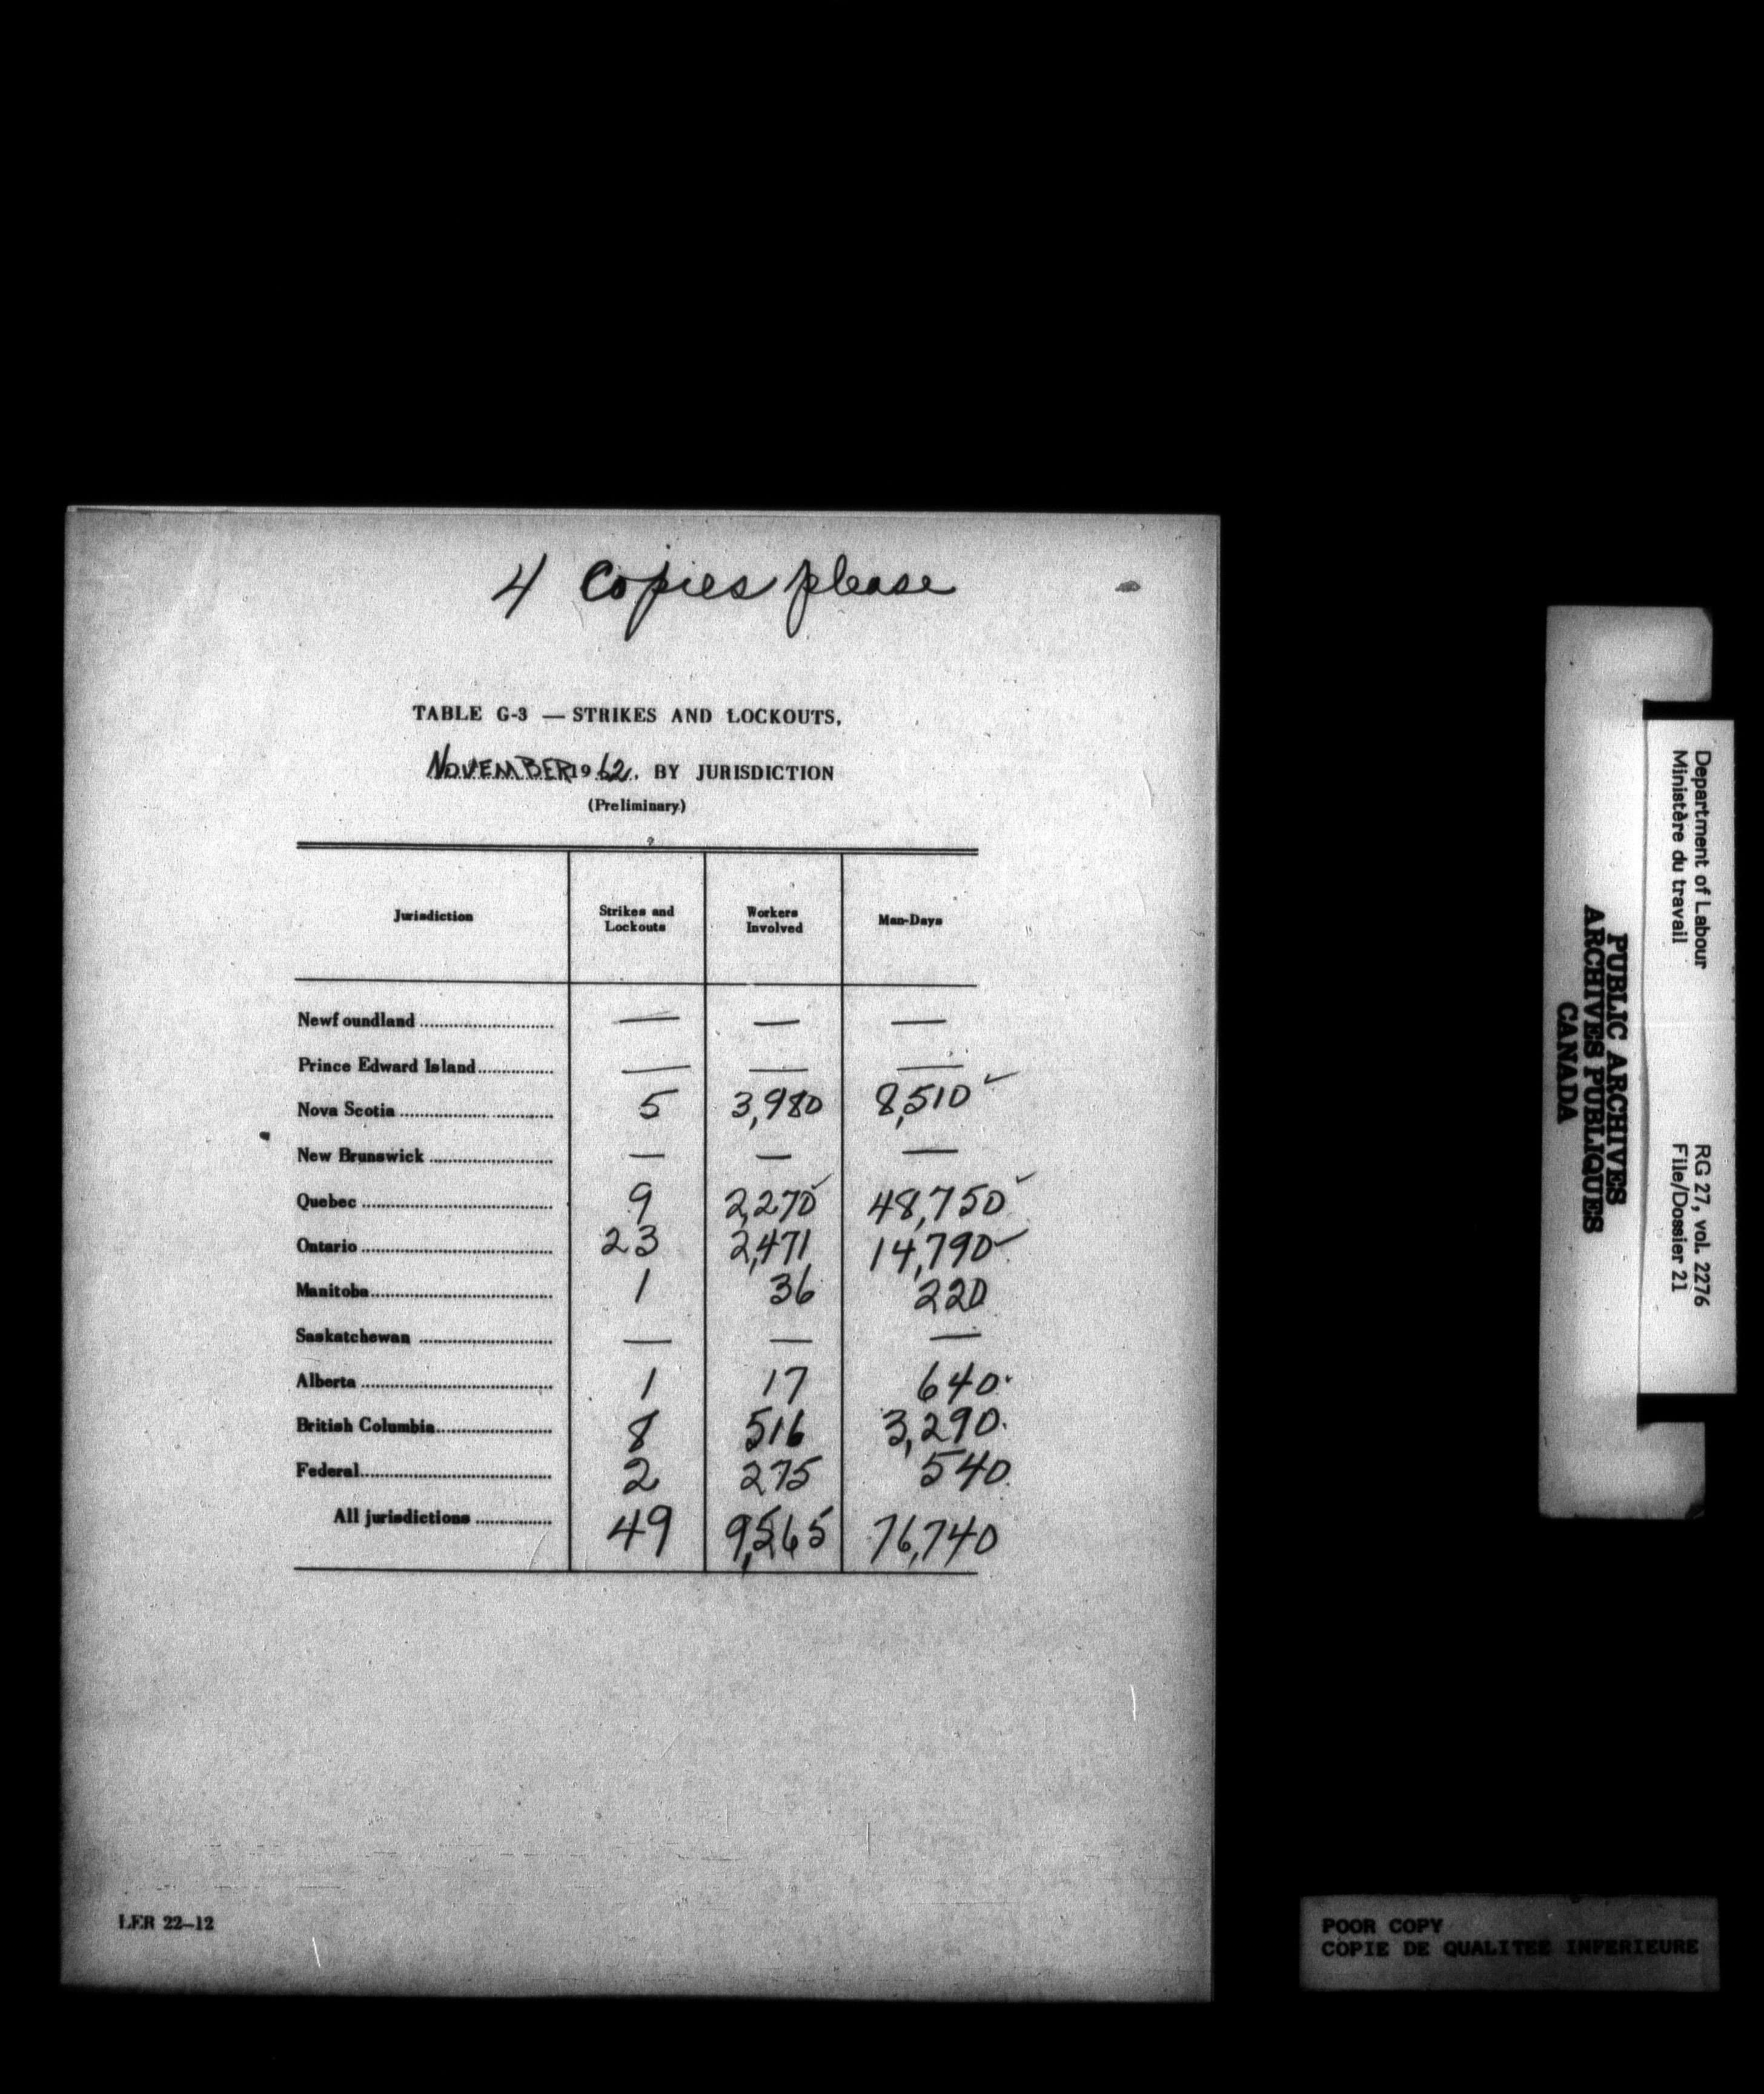 4 Copies please
TABLE G-3 — STRIKES AND LOCKOUTS,
NOVEMBER 1962, BY JURISDICTION
(Preliminary)
Jurisdiction Strikes and Lockouts Workers Involved Man-Days
Newfoundland — — —
Prince Edward Island — — —
Nova Scotia 5 3,980 8,510 ✓
New Brunswick — — —
Quebec 9 2,270 ✓ 48,750 ✓
Ontario 23 2,471 14,790 ✓
Manitoba 1 36 220
Saskatchewan — — —
Alberta 1 17 640
British Columbia 8 516 3,290
Federal 2 275 540
All jurisdictions 49 9,565 76,740
LER 22-12
Department of Labour
Ministère du travail
RG 27, vol. 2276
File/Dossier 21
PUBLIC ARCHIVES
ARCHIVES PUBLIQUES
CANADA
POOR COPY
COPIE DE QUALITEE INFERIEURE